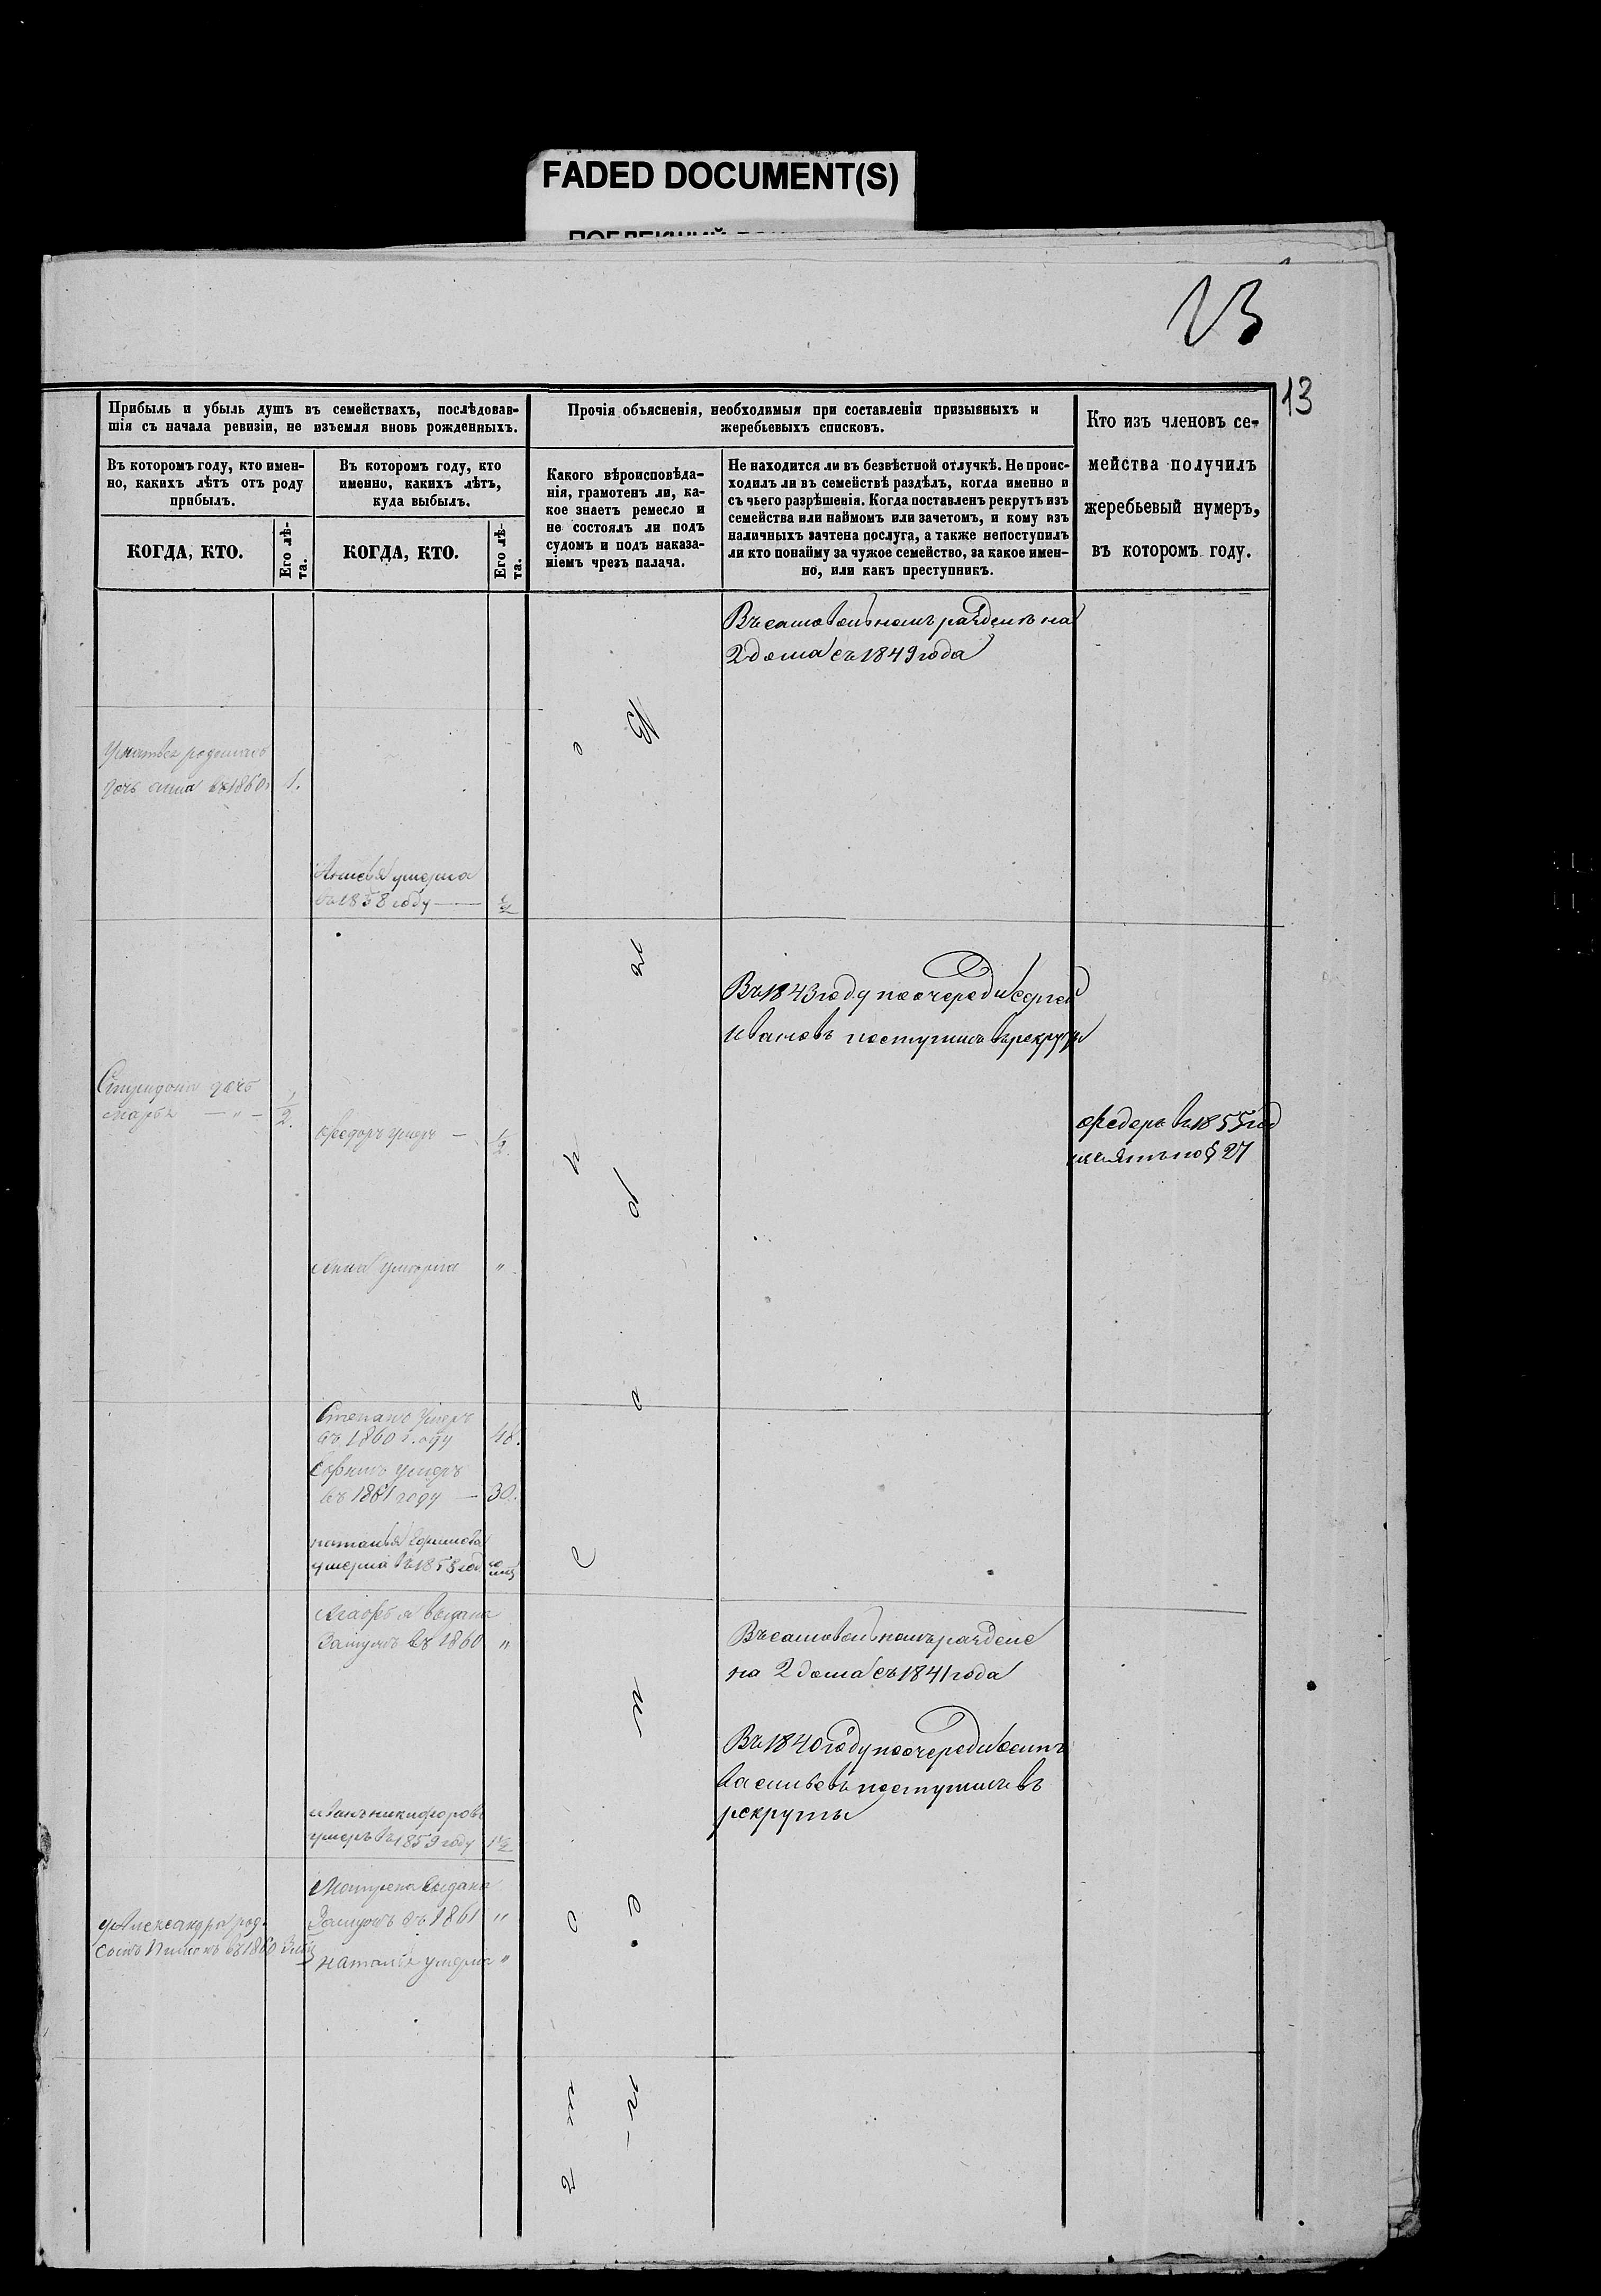 FADED DOCUMENT(S)
13
13
Прибыль и убыль душъ въ семействахъ, послѣдовав-
шія съ начала ревизіи, не изъемля вновь рожденныхъ.
Въ которомъ году, кто имен-
но, какихъ лѣтъ отъ роду
прибылъ.
Въ которомъ году, кто
именно, какихъ лѣтъ,
куда выбылъ.
КОГДА, КТО.
Его лѣ-
та.
КОГДА, КТО.
Его лѣ-
та.
Прочія объясненія, необходимыя при составленіи призывныхъ и
жеребьевыхъ списковъ.
Какого вѣроисповѣда-
нія, грамотенъ ли, ка-
кое знаетъ ремесло и
не состоялъ ли подъ
судомъ и подъ наказа-
ніемъ чрезъ палача.
Не находится ли въ безвѣстной отлучкѣ. Не проис-
ходилъ ли въ семействѣ раздѣлъ, когда именно и
съ чьего разрѣшенія. Когда поставленъ рекрутъ изъ
семейства или наймомъ или зачетомъ, и кому изъ
наличныхъ зачтена послуга, а также непоступилъ
ли кто понайму за чужое семейство, за какое имен-
но, или какъ преступникъ.
Кто изъ членовъ се-
мейства получилъ
жеребьевый нумеръ,
въ которомъ году.
Въ самовольномъ разделѣ на
2 дома съ 1849 года
дочь въ 1860 1.
умерла
въ 1858 году
Въ 1843 году поочереди Сергей
Ивановъ поступилъ в рекруты
дочь
Марья
Федоръ умеръ
Федоръ в 1855 год
по § 27
Анна умерла "
Степанъ умеръ
въ 1860 году 48.
умеръ
въ 1861 году 30.
наталья
умерла въ 1858 год
выдана
Замужъ въ 1860 "
Въ самовольномъ разделе
на 2 дома съ 1841 года
Въ 1840 году поочереди Осипъ
Васильевъ поступилъ въ
рекруты
иванъ никифоровъ
умеръ въ 1859 году
Матрена выдана
Замужъ въ 1861 "
Александры род.
сынъ въ 1860
наталья умерла "